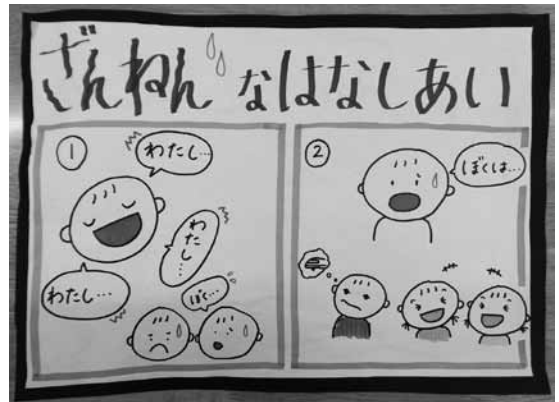 ざんねんなはなしあい
①
わたし…
わたし…
わたし…
ぼく…
②
ぼくは…